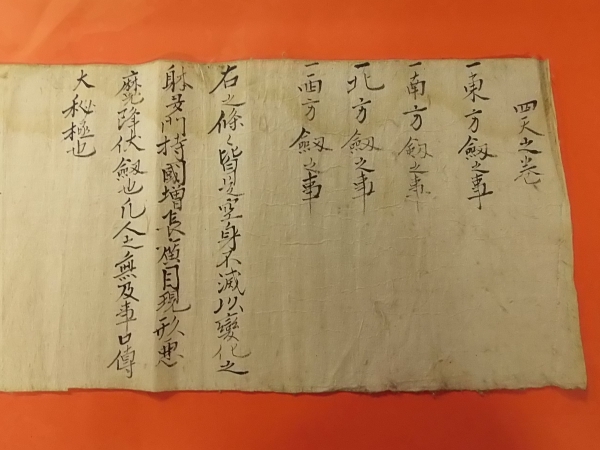 四天之巻
一東方釼之事
一南方釼之事
一北方釼之事
一西方釼之事
右之條々皆是空身不滅以變化之
躰多門持國増長廣目現形悪
魔降伏釼也凡人之無及事口傳
大秘極也